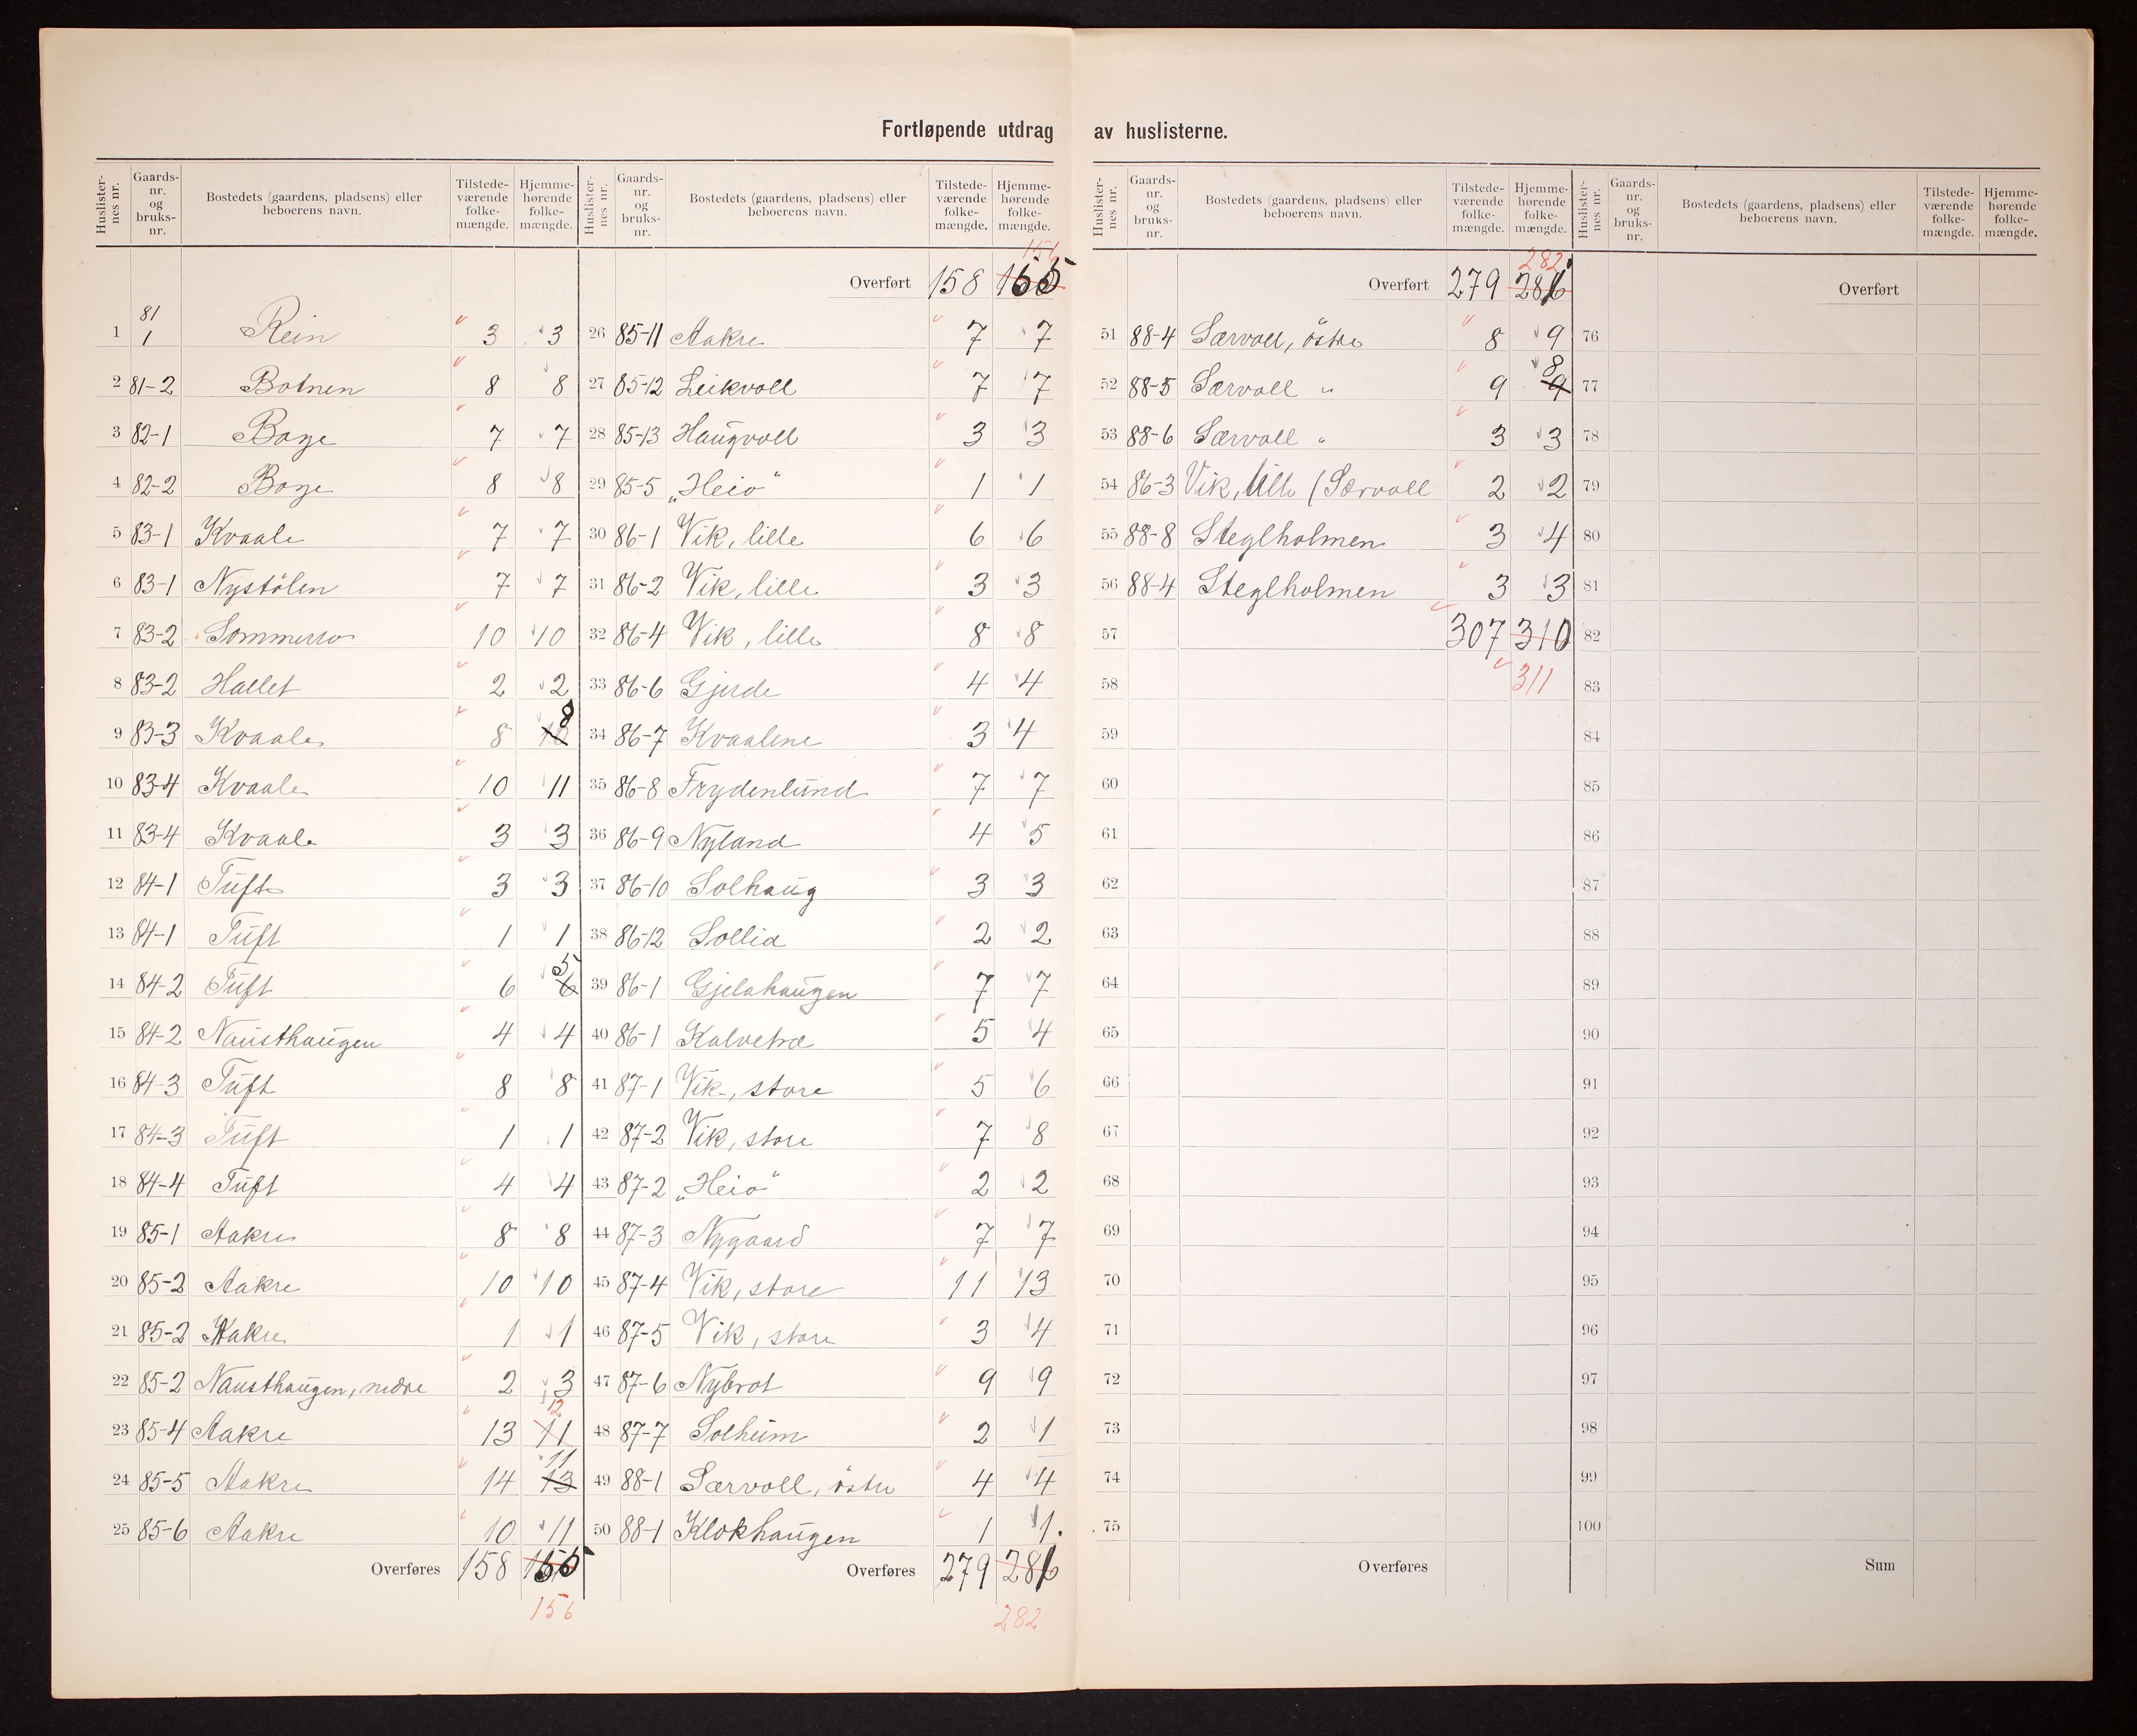 Fortløpende utdrag av huslisternes.
Huslister-nes nr. Gaards-nr. og bruks-nr. Bostedets (gaardens, pladsens) eller beboerens navn. Tilstede-værende folke-mængde. Hjemme-hørende folke-mængde.
1 81 1 Rein 3 3
2 81-2 Botnen 8 8
3 82-1 Boge 7 7
4 82-2 Boge 8 8
5 83-1 Kvaale 7 7
6 83-1 Nystölen 7 7
7 83-2 Sommerro 10 10
8 83-2 Hallet 2 2
9 83-3 Kvaale 8 10 8
10 83-4 Kvaale 10 11
11 83-4 Kvaale 3 3
12 84-1 Tufte 3 3
13 84-1 Tuft 1 1
14 84-2 Tuft 6 6 5
15 84-2 Nausthaugen 4 4
16 84-3 Tuft 8 8
17 84-3 Tuft 1 1
18 84-4 Tuft 4 4
19 85-1 Aakre 8 8
20 85-2 Aakre 10 10
21 85-2 Aakre 1 1
22 85-2 Nausthaugen, nedre 2 3
23 85-4 Aakre 13 11 12
24 85-5 Aakre 14 13 11
25 85-6 Aakre 10 11
Overføres 158 155
156
Huslister-nes nr. Gaards-nr. og bruks-nr. Bostedets (gaardens, pladsens) eller beboerens navn. Tilstede-værende folke-mængde. Hjemme-hørende folke-mængde.
156
Overført 158 155
26 85-11 Aakre 7 7
27 85-12 Leikvoll 7 7
28 85-13 Haugvoll 3 3
29 85-5 „Heio“ 1 1
30 86-1 Vik, lille 6 6
31 86-2 Vik, lille 3 3
32 86-4 Vik, lille 8 8
33 86-6 Gjerde 4 4
34 86-7 Kvaalene 3 4
35 86-8 Frydenlund 7 7
36 86-9 Nyland 4 5
37 86-10 Solhaug 3 3
38 86-12 Sollid 2 2
39 86-1 Gjelahaugen 7 7
40 86-1 Kalvetræ 5 4
41 87-1 Vik, store 5 6
42 87-2 Vik, store 7 8
43 87-2 „Heio“ 2 2
44 87-3 Nygaard 7 7
45 87-4 Vik, store 11 13
46 87-5 Vik, store 3 4
47 87-6 Nybrot 9 9
48 87-7 Solheim 2 1
49 88-1 Særvoll, östre 4 4
50 88-1 Klokhaugen 1 1.
Overføres 279 281
282
Huslister-nes nr. Gaards-nr. og bruks-nr. Bostedets (gaardens, pladsens) eller beboerens navn. Tilstede-værende folke-mængde. Hjemme-hørende folke-mængde.
282
Overført 279 281
51 88-4 Særvoll, östre 8 9
52 88-5 Særvoll " 9 9 8
53 88-6 Særvoll " 3 3
54 86-3 Vik, lille (Særvoll 2 2
55 88-8 Steglholmen 3 4
56 88-4 Steglholmen 3 3
57 307 310
58 311
59
60
61
62
63
64
65
66
67
68
69
70
71
72
73
74
75
Overføres
Huslister-nes nr. Gaards-nr. og bruks-nr. Bostedets (gaardens, pladsens) eller beboerens navn. Tilstede-værende folke-mængde. Hjemme-hørende folke-mængde.
Overført
76
77
78
79
80
81
82
83
84
85
86
87
88
89
90
91
92
93
94
95
96
97
98
99
100
Sum